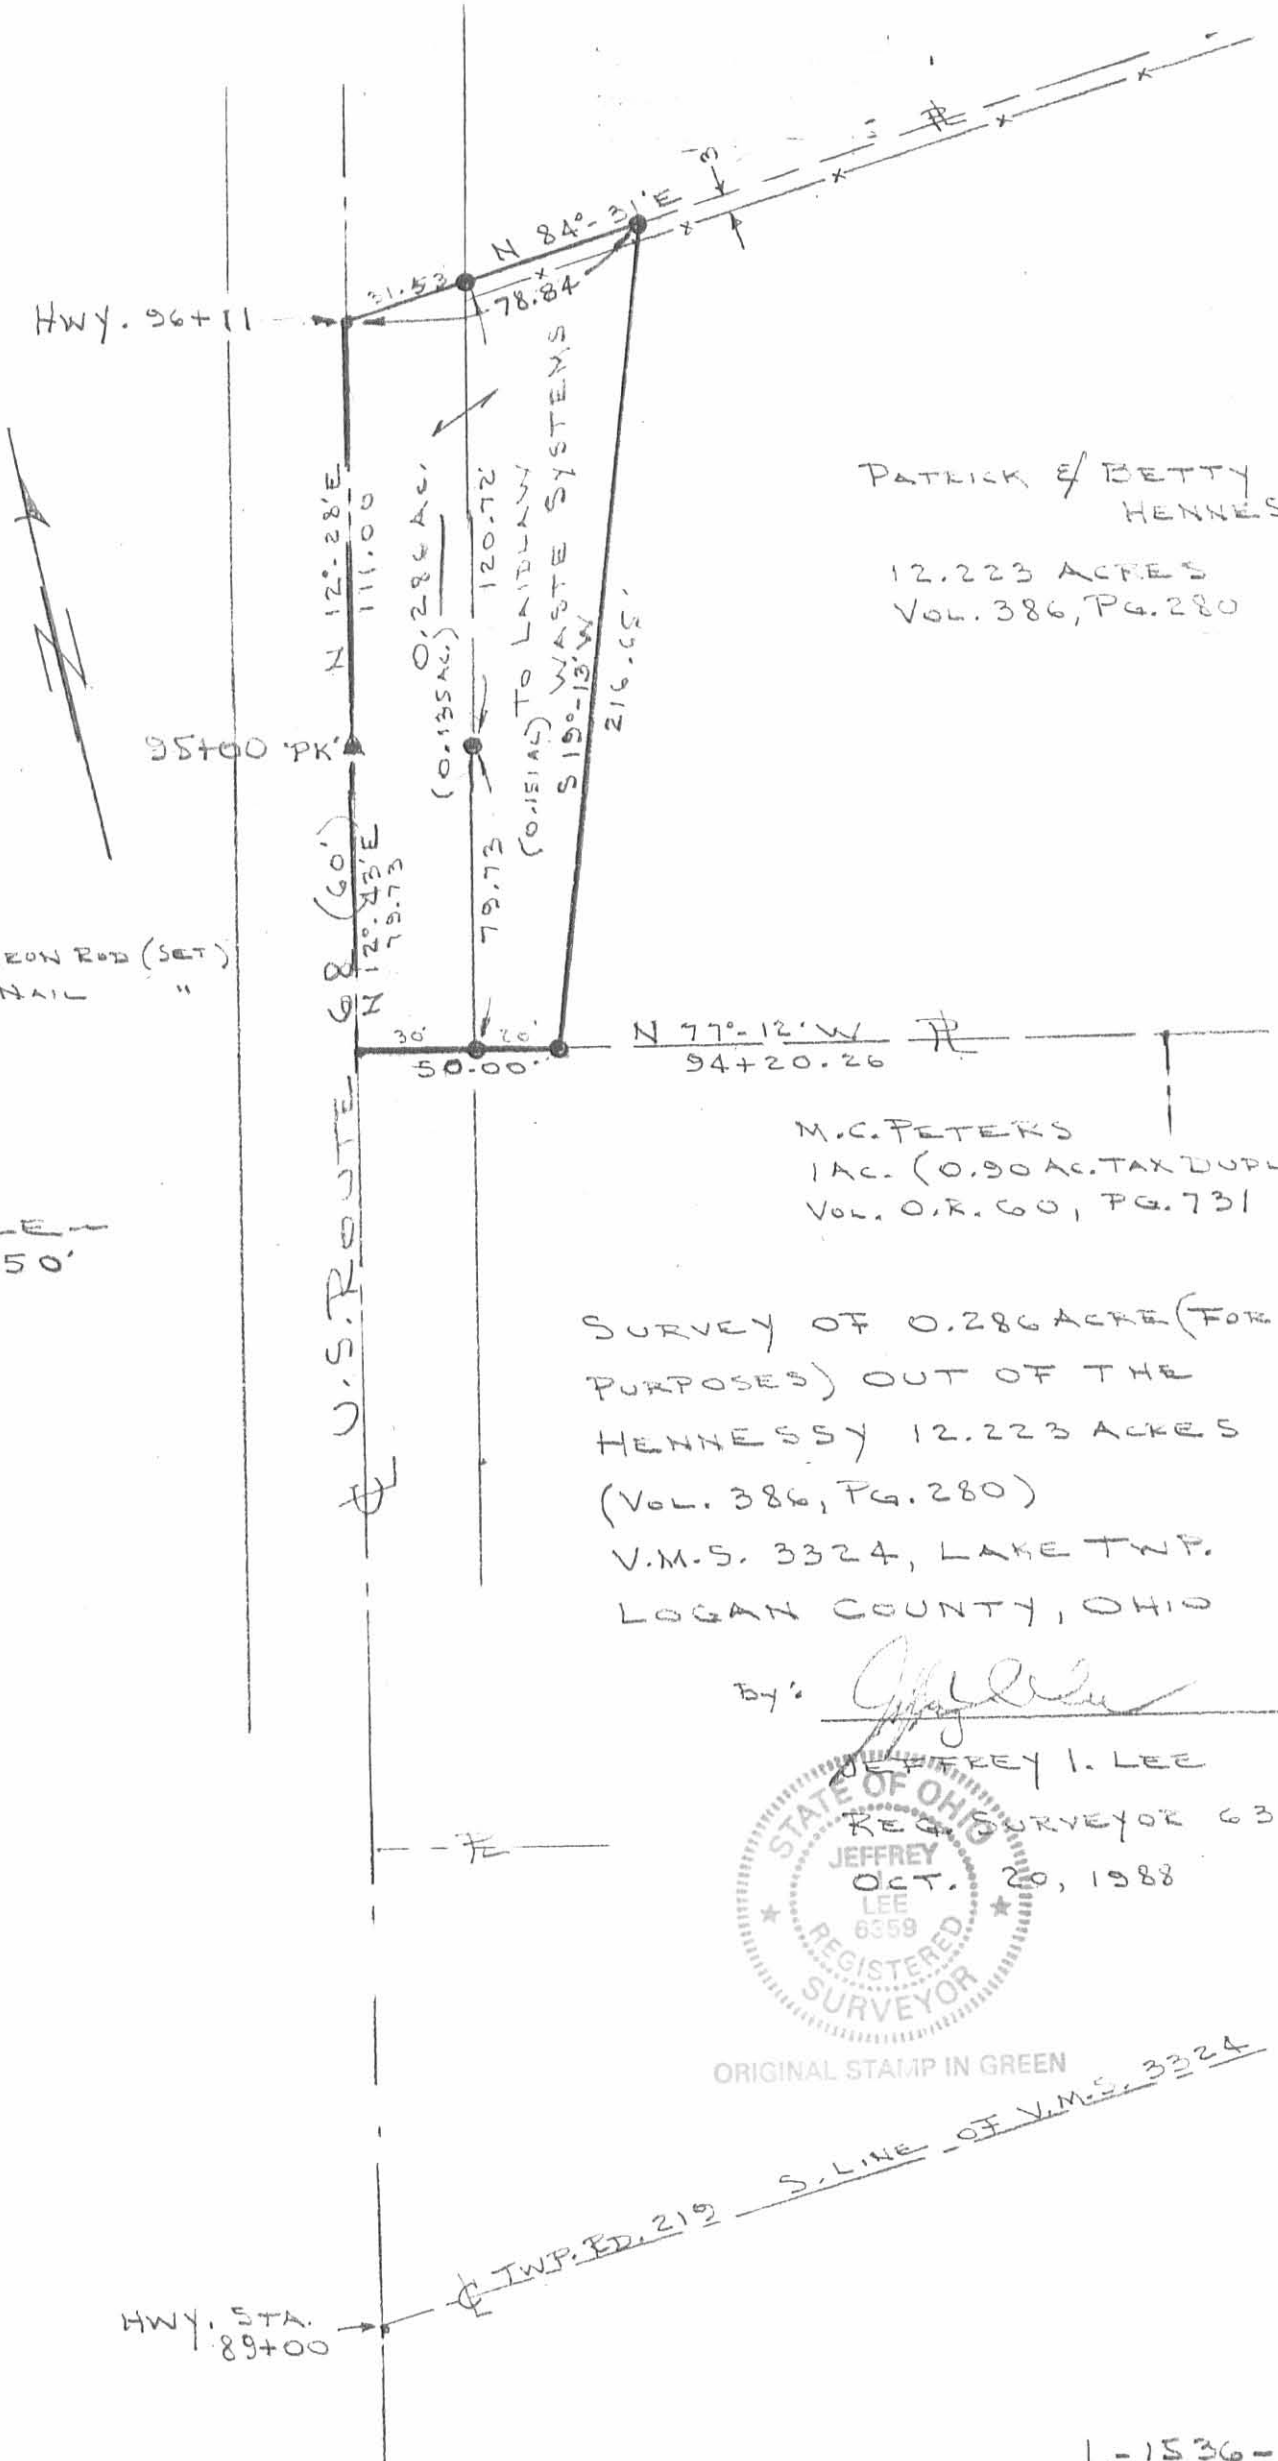 3'
N 84°-31' E
31.53
78.84
HWY. 96+11
N 12°-28' E
111.00
0.286 AC.
(0.135 AC.)
120.72'
(0.151 AC) TO LAIDLAW
WASTE SYSTEMS
S 19°-13' W
216.65'
PATRICK & BETTY
HENNES
12.223 ACRES
VOL. 386, PG. 280
95+00 'PK'
N 12°-43' E
79.73
79.73
IRON ROD (SET)
NAIL "
30' 20'
50.00'
N 77°-12' W PL
94+20.26
M.C. PETERS
1 AC. (0.90 AC. TAX DUPL
VOL. O.R. 60, PG. 731
LE
50'
CL U.S. ROUTE 68 (60')
SURVEY OF 0.286 ACRE (FOR
PURPOSES) OUT OF THE
HENNESSY 12.223 ACRES
(VOL. 386, PG. 280)
V.M.S. 3324, LAKE TWP.
LOGAN COUNTY, OHIO
BY:
JEFFREY I. LEE
REG. SURVEYOR 63
OCT. 20, 1988
STATE OF OHIO
JEFFREY
LEE
6359
REGISTERED
SURVEYOR
ORIGINAL STAMP IN GREEN
PL
CL TWP. RD. 219 S. LINE OF V.M.S. 3324
HWY. STA.
89+00
1-1536-